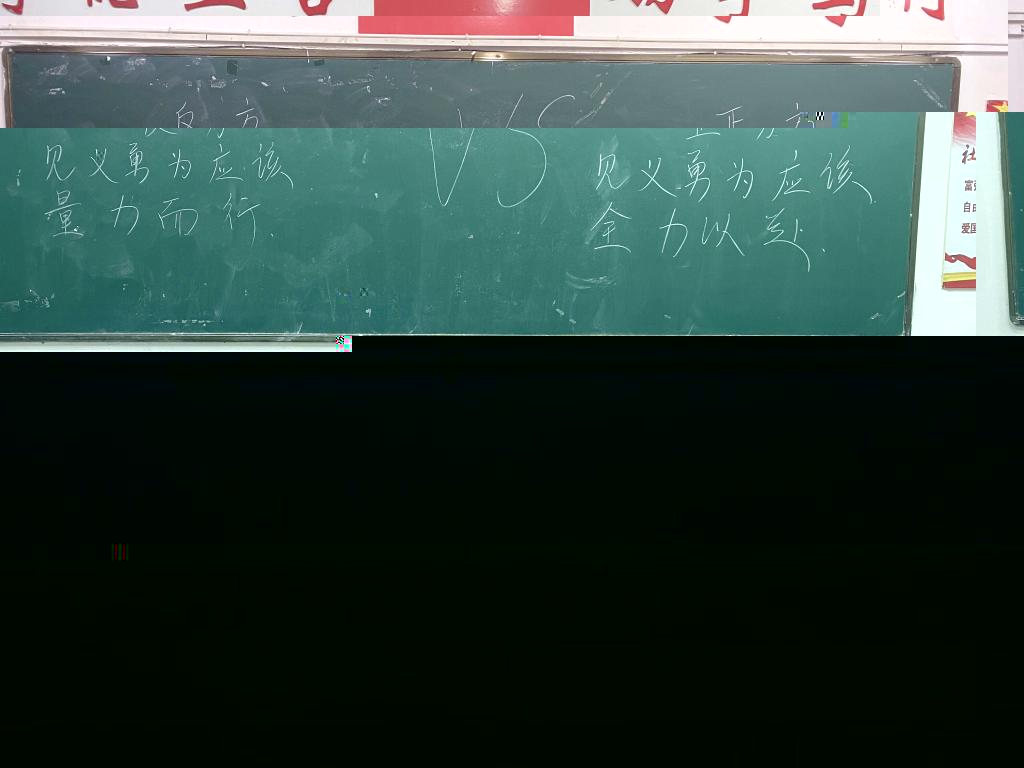 反方
VS
正方
见义勇为应该
量力而行.
见义勇为应该
全力以赴.
社
富强
自由
爱国